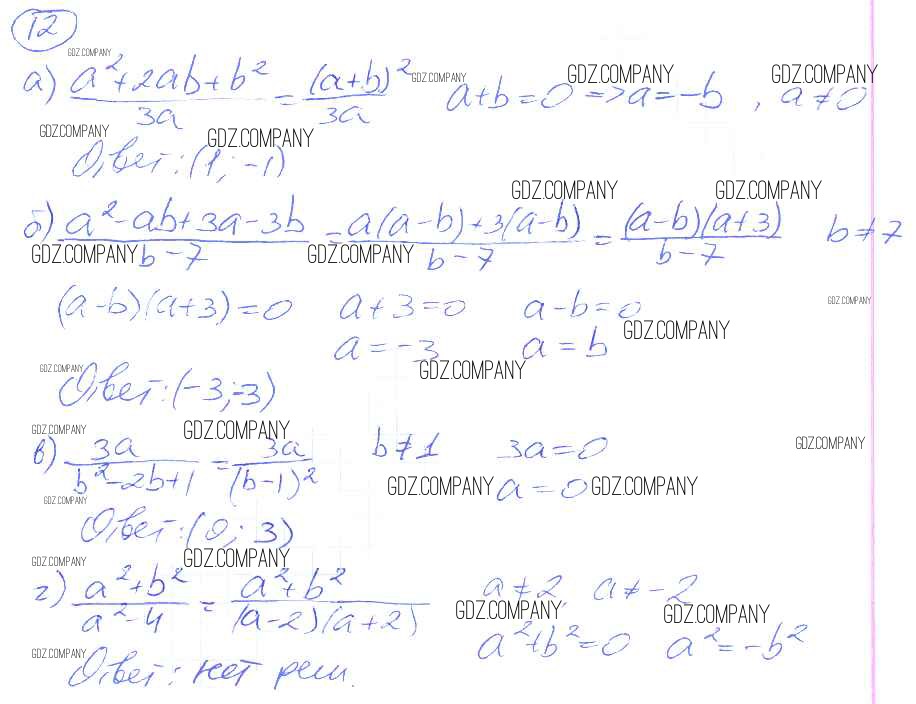 12
GDZ.COMPANY
а) a²+2ab+b² / 3a = (a+b)² / 3a a+b=0 => a=-b , a≠0
GDZ.COMPANY GDZ.COMPANY GDZ.COMPANY
GDZ.COMPANY GDZ.COMPANY
Ответ: (1; -1)
GDZ.COMPANY GDZ.COMPANY
б) a²-ab+3a-3b / b-7 = a(a-b)+3(a-b) / b-7 = (a-b)(a+3) / b-7 b≠7
GDZ.COMPANY GDZ.COMPANY
(a-b)(a+3)=0 a+3=0 a-b=0
GDZ.COMPANY
GDZ.COMPANY
a=-3 a=b
GDZ.COMPANY GDZ.COMPANY
Ответ: (-3; -3)
GDZ.COMPANY GDZ.COMPANY GDZ.COMPANY
в) 3a / b²-2b+1 = 3a / (b-1)² b≠1 3a=0
GDZ.COMPANY a=0 GDZ.COMPANY
GDZ.COMPANY
Ответ: (0; 3)
GDZ.COMPANY GDZ.COMPANY
г) a²+b² / a²-4 = a²+b² / (a-2)(a+2) a≠2, a≠-2
GDZ.COMPANY GDZ.COMPANY
a²+b²=0 a²=-b²
GDZ.COMPANY
Ответ: нет реш.